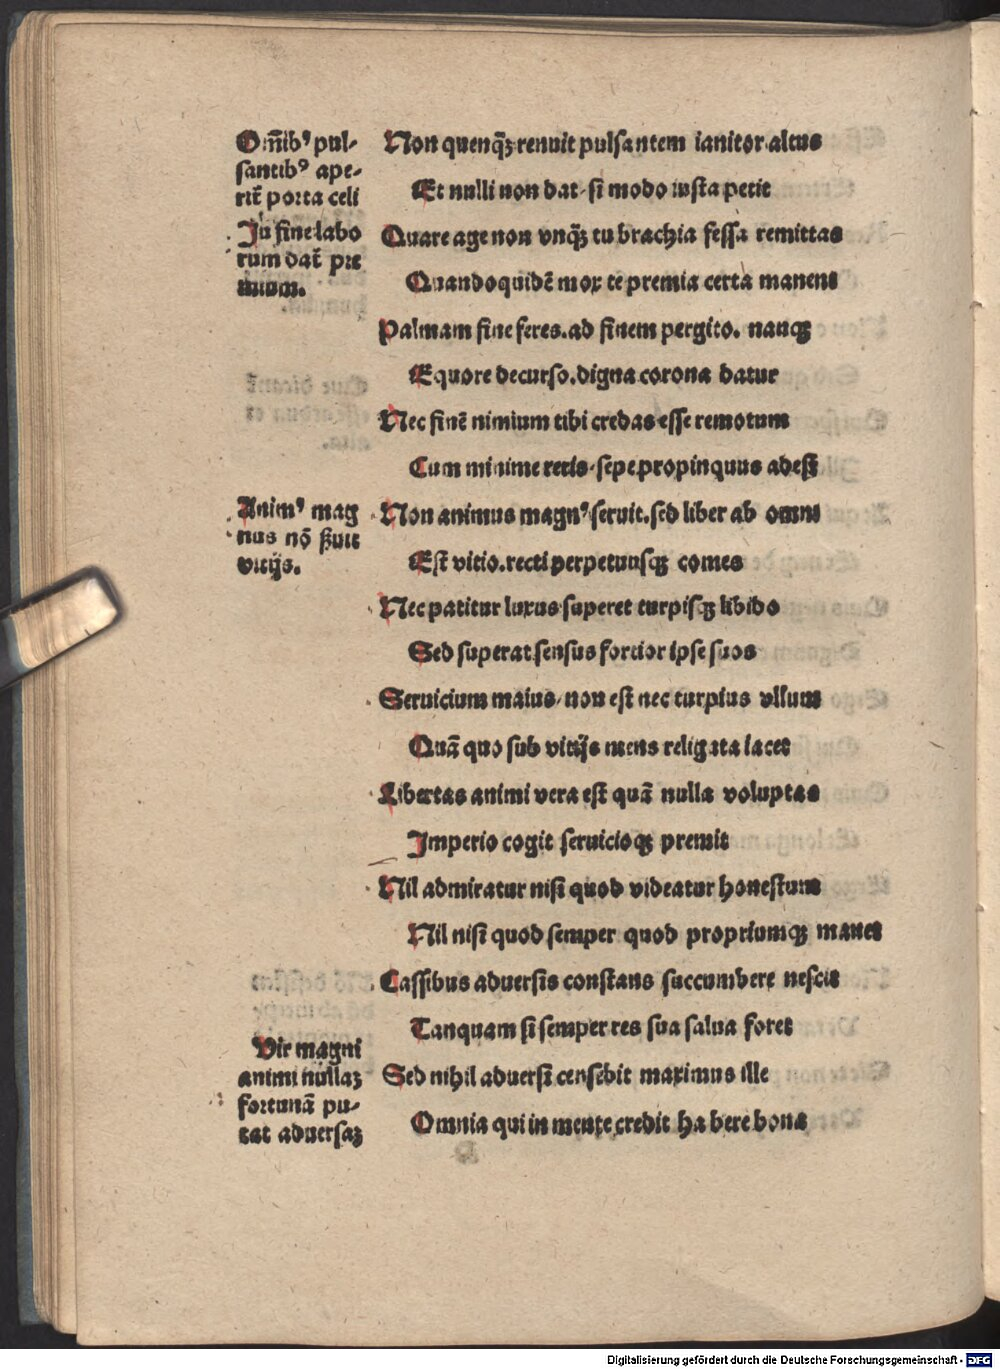 Om̅ibꝰ pul-
santibꝰ ape-
rit̅ porta celi
In fine labo
rum dat̅ pre
mium.
Animꝰ mag
nus nō ẞuit
vitijs.
Vir magni
animi nullaꝫ
fortunā pu-
tat aduersaꝫ
Non quenq̅ꝫ renuit pulsantem ianitor altus
Et nulli non dat si modo iusta petit
Quare age non vnq̅ꝫ tu brachia fessa remittas
Quandoquidē mox te premia certa manent
Palmam fine feres. ad finem pergito. nanqꝫ
Equore decurso. digna corona datur
Nec finē nimium tibi credas esse remotum
Cum minime reris sepe propinquus adest
Non animus magnꝰ seruit. sed liber ab omni
Est vitio. recti perpetuusqꝫ comes
Nec patitur luxus superet turpisqꝫ libido
Sed superat sensus fortior ipse suos
Seruicium maius non est nec turpius vllum
Quā quo sub vitijs mens religata iacet
Libertas animi vera est quā nulla voluptas
Imperio cogit seruicioqꝫ premit
Nil admiratur nisi quod videatur honestum
Nil nisi quod semper quod propriumqꝫ manet
Cassibus aduersis constans succumbere nescit
Tanquam si semper res sua salua foret
Sed nihil aduersi censebit maximus ille
Omnia qui in mente credit habere bona
Digitalisierung gefördert durch die Deutsche Forschungsgemeinschaft - DFG